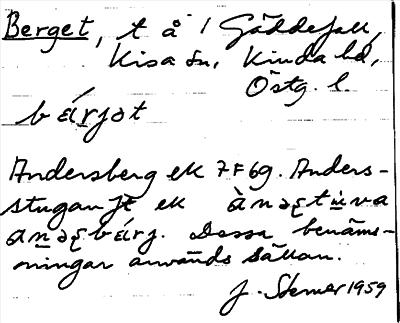 Berget, t å / Gäddefall,
Kisa sn, Kinda hd,
Östg. l.
bǽrjət
Andersberg ek 7F6g. Anders-
stugan jt ek ànəʂtʉva
anəʂbǽrj. Dessa benäm-
ningar används sällan.
J. Stemer 1959